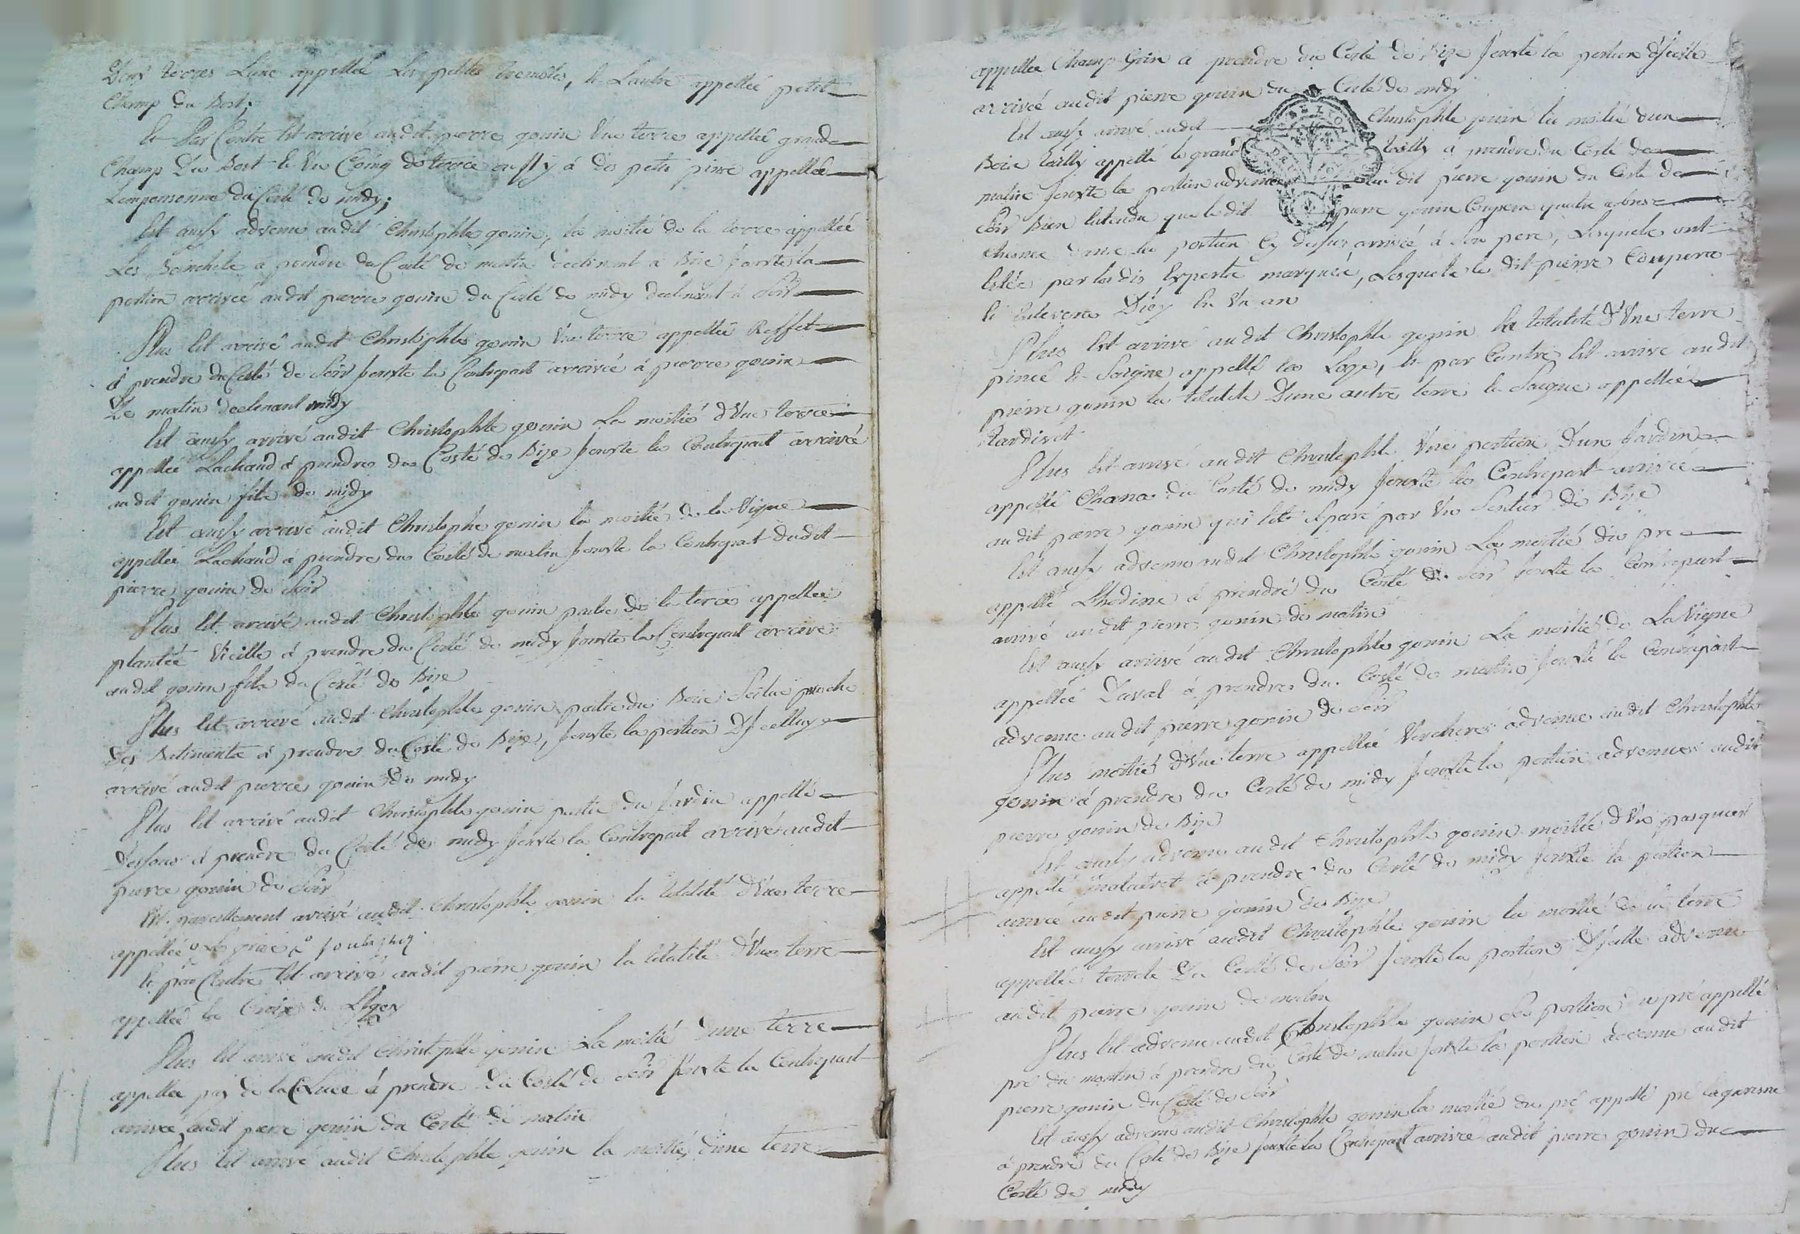 Deux terres Lune appellée Les petites trembles, & Lautre appellée petit
Champ du Bost;
Et Par Contre Est arrivé audit pierre gonin Une terre appellée grand
Champ Du Bost & Un Coing de terre ou Il y à des petits pins appellée
du Costé de midy;
Est aussy advenu audit Christophle gonin, la moitié de la terre appellée
Les à prendre du Costé de matin declinant à Bize Jouxte la
portion arrivée audit pierre gonin du Costé de midy declinant à Soir
Plus Est arrivé audit Christophle gonin Une terre appellée
à prendre du Costé de Soir Jouxte la Contrepart arrivée à pierre gonin
De matin declinant midy
Est aussy arrivé audit Christophle gonin La moitié d'Une terre
appellée Lachaud à prendre du Costé de Bize Jouxte la Contrepart arrivée
audit gonin fils de midy
Est aussy arrivé audit Christophe gonin la moitié de la Vigne
appellée Lachaud à prendre du Costé de matin Jouxte la Contrepart dudit
pierre gonin de Soir
Plus Est arrivé audit Christophle gonin partie de la terre appellée
plantée Vieille à prendre du Costé de midy Jouxte la Contrepart arrivée
audit gonin fils du Costé de Bize
Plus Est arrivé audit Christophle gonin partie du Bois Scitué proche
Des Batiments à prendre du Costé de Bize, Jouxte la portion D'Jcelluy
arrivé audit pierre gonin de midy
Plus Est arrivé audit Christophle gonin partie du Jardin appellé
dessous à prendre du Costé de midy Jouxte la Contrepart arrivée audit
pierre gonin de Soir
Est pareillement arrivé audit Christophle gonin la totalité d'Une terre
appellée
Et par Contre Est arrivé audit pierre gonin la totalité d'Une terre
appellée la Croix de
Plus Est arrivé audit Christophle gonin La moitié d'une terre
appellée pas de la à prendre du Costé de Soir Jouxte la Contrepart
arrivée audit pierre gonin du Costé de matin
Plus Est arrivé audit Christophle gonin la moitié d'une terre
appellée Champ à prendre du Costé de Bize Jouxte la portion d'Jcelle
arrivée audit pierre gonin du Costé de midy
Est aussy arrivé audit Christophle gonin la moitié d'un
Bois tailly appellé le grand tailly à prendre du Costé de
matin Jouxte la portion advenue audit pierre gonin du Costé de
Soir Bien Entendu que le dit pierre gonin Coupera quatre arbres
Chesnes dans la portion Cy dessus arrivée à Son pere, Lesquels ont
Estés par les dis Experts marqués, Lesquels le dit pierre Coupera
& Enlevera D'icy En Un an
Plus Est arrivé audit Christophle gonin la totalité d'Une terre
& appellé La Loge, & par Contre Est arrivé audit
pierre gonin la totalité d'une autre terre & appellée
tardivet
Plus Est arrivé audit Christophle Une portion d'un Jardin
appellé du Costé de midy Jouxte la Contrepart arrivée
audit pierre gonin qui Est Separé par Un Sentier de Bize
Est aussy advenu audit Christophle gonin La moitié du pré
appellé à prendre du Costé de Soir Jouxte la Contrepart
arrivé audit pierre gonin de matin
Est aussy arrivé audit Christophle gonin La moitié de La Vigne
appellée Daval à prendre du Costé de matin Jouxte la Contrepart
advenue audit pierre gonin de Soir
Plus moitié d'Une terre appellée Verchere advenue audit Christophle
gonin à prendre du Costé de midy Jouxte la portion advenue audit
pierre gonin de Bize
Est aussy advenu audit Christophle gonin moitié d'Un pasquier
appellé à prendre du Costé de midy Jouxte la portion
arrivée audit pierre gonin de Bize
Est aussy arrivé audit Christophle gonin la moitié de la terre
appellée Du Costé de Soir Jouxte la portion d'Jcelle advenue
audit pierre gonin de matin
Plus Est advenu audit Christophle gonin La portion du pré appellé
pré du à prendre du Costé de matin Jouxte la portion advenue audit
pierre gonin du Costé de Soir
Est aussy advenu audit Christophle gonin la moitié du pré appellé pré Lagarenne
à prendre du Costé de Bize Jouxte la Contrepart arrivée audit pierre gonin du
Costé de midy